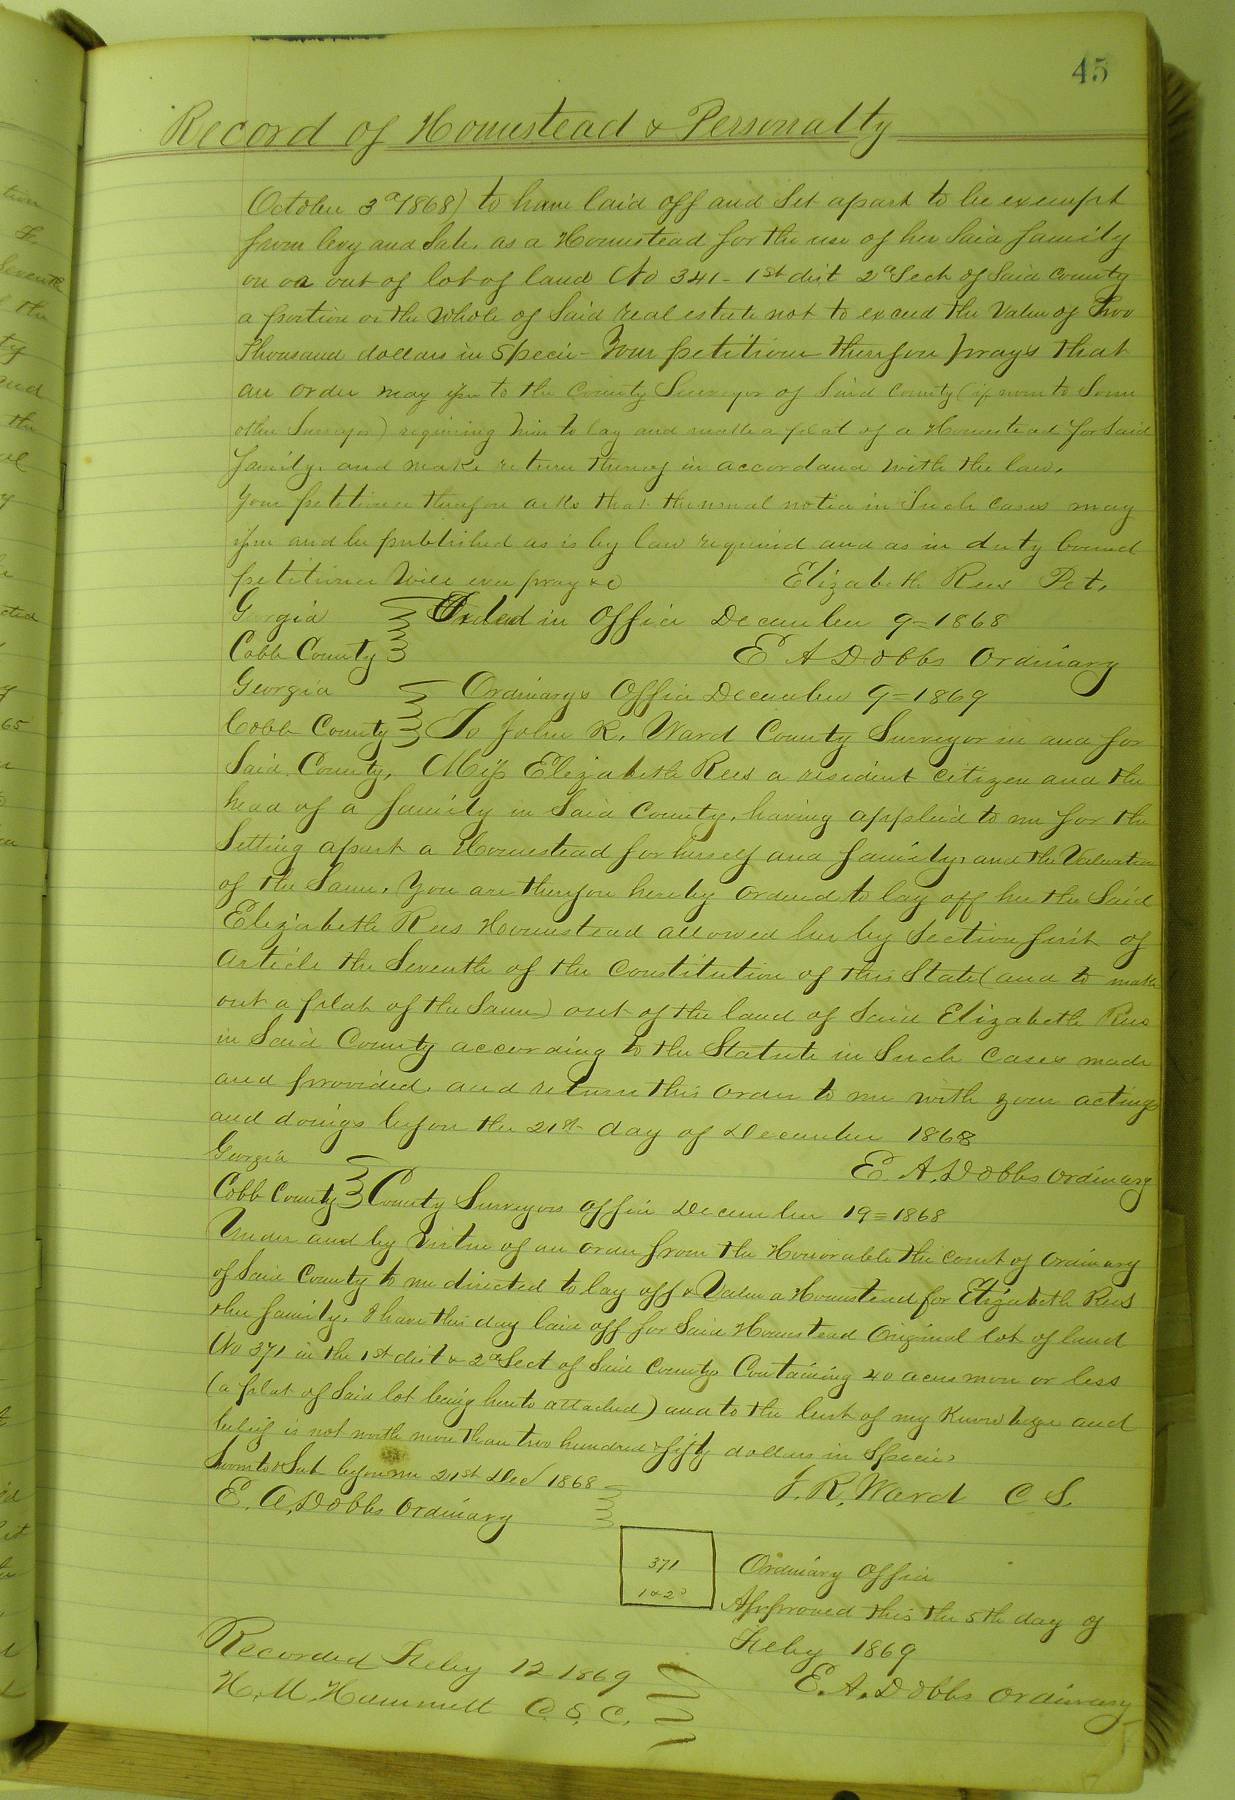 45
Record of Homestead & Personalty
October 3d 1868) to have laid off and Set apart to be exempt
from levy and Sale, as a Homestead for the use of her Said family
on or out of lot of land No 341 - 1st dist 2d Sect of Said County
a portion or the whole of Said real estate not to exceed the Value of Two
Thousand dollars in Specie - Your petitioner therefore prays that
an order may issue to the County Surveyor of Said County (if none to Some
other Surveyor) requiring him to lay and make a plat of a Homestead for Said
family, and make return thereof in accordance with the law.
Your petitioner therefore asks that the usual notice in Such Cases may
issue and be published as is by law required and as in duty bound
petitioner will ever pray &c Elizabeth Rees Pet.
Georgia
Cobb County
Filed in Office December 9 = 1868
E A Dobbs Ordinary
Georgia
Cobb County
Ordinarys Office December 9 = 1869
To John R. Ward County Surveyor in and for
Said County, Miss Elizabeth Rees a resident citizen and the
head of a family in Said County, having applied to me for the
Setting apart a Homestead for herself and family, and the Valuation
of the Same, You are therefore hereby ordered to lay off her the Said
Elizabeth Rees Homestead allowed her by Section first of
Article the Seventh of the Constitution of this State (and to make
out a plat of the Same) out of the land of Said Elizabeth Rees
in Said County according to the Statute in Such Cases made
and provided, and return this order to me with your actings
and doings before the 21st day of December 1868
E. A. Dobbs Ordinary
Georgia
Cobb County
County Surveyors Office December 19 = 1868
Under and by Virtue of an order from the Honorable the Court of Ordinary
of Said County to me directed to lay off & Value a Homestead for Elizabeth Rees
& her family, I have this day laid off for Said Homestead Original lot of land
No 371 in the 1st dist & 2d Sect of Said County Containing 40 acres more or less
(a plat of Said lot being hereto attached) and to the best of my Knowledge and
belief is not worth more than two hundred & fifty dollars in Specie.
Sworn to & Sub before me 21st Dec 1868
J. R. Ward C S.
E. A. Dobbs Ordinary
371
1 & 2d
Ordinary Office
Approved this the 5th day of
Feby 1869
E. A. Dobbs Ordinary
Recorded Feby 12 1869
H. M. Hammett C. S. C.